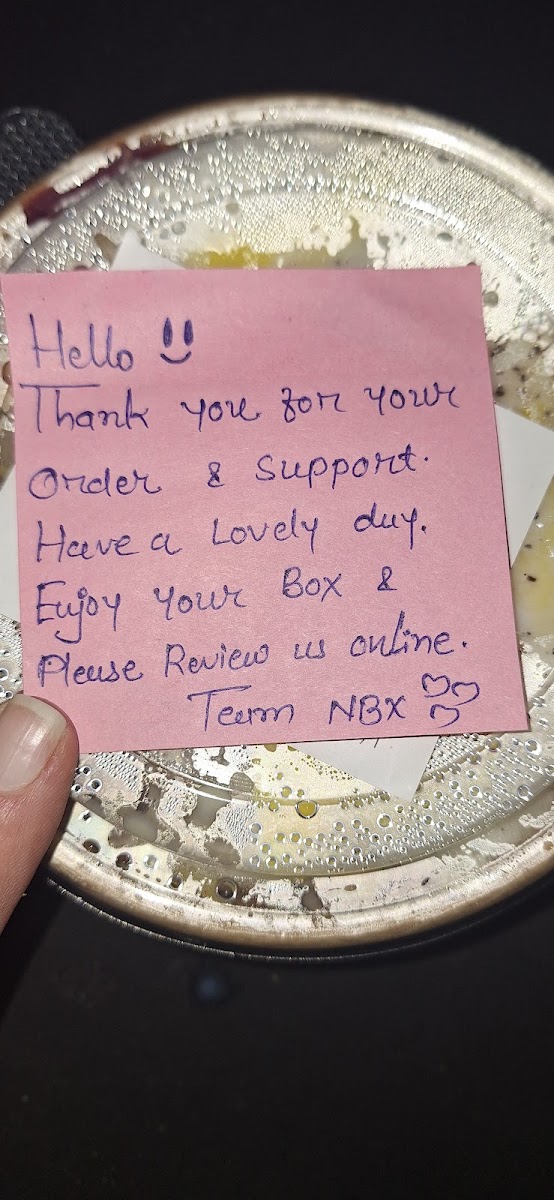 Hello
Thank you for your
Order & Support.
Have a Lovely day.
Enjoy your Box &
Please Review us online.
Team NBX